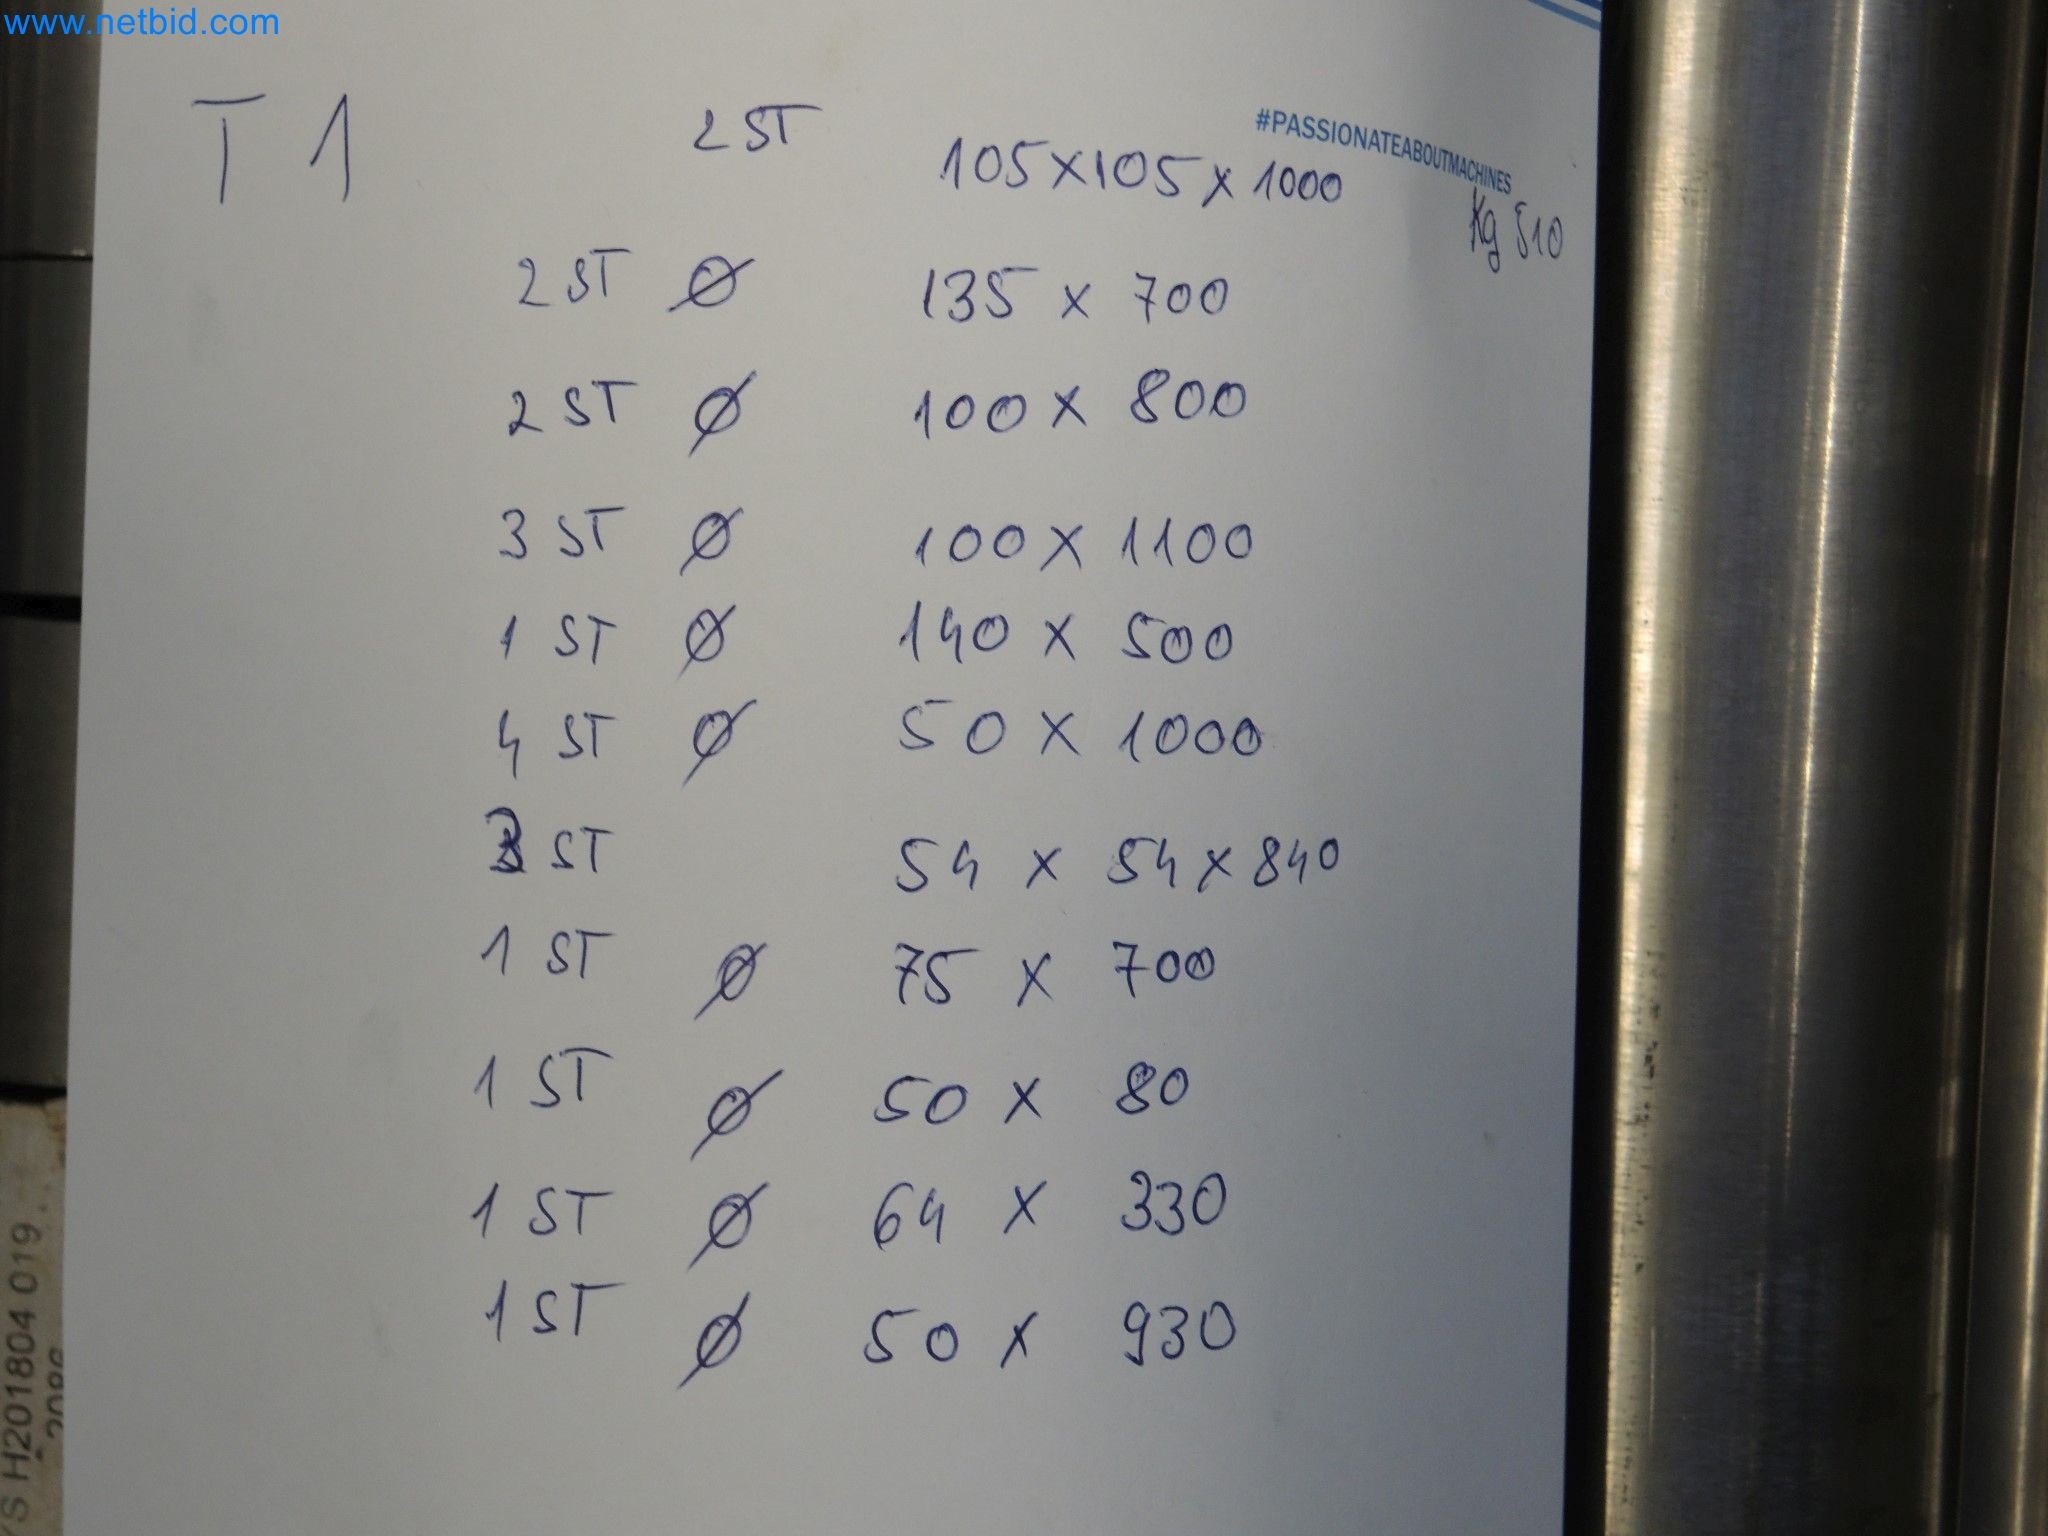 www.netbid.com
#PASSIONATEABOUTMACHINES
T 1 2 ST 105 x 105 x 1000
Kg 510
2 ST Ø 135 x 700
2 ST Ø 100 x 800
3 ST Ø 100 x 1100
1 ST Ø 140 x 500
4 ST Ø 50 x 1000
ST 54 x 54 x 840
1 ST Ø 75 x 700
1 ST Ø 50 x 80
1 ST Ø 64 x 330
1 ST Ø 50 x 930
H201804 019